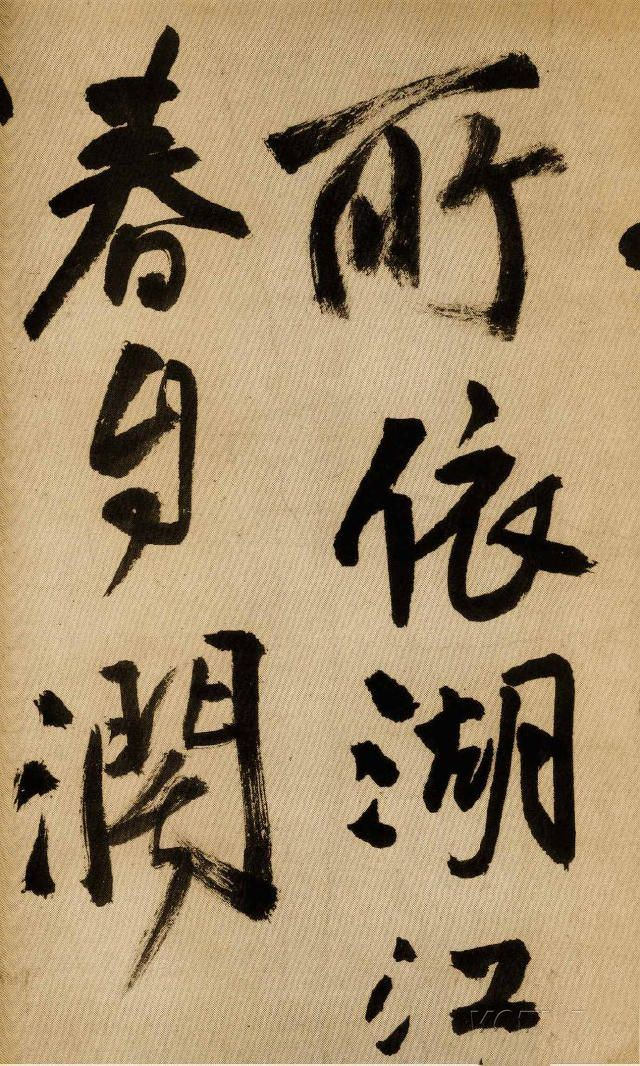 所依湖江
春自濶